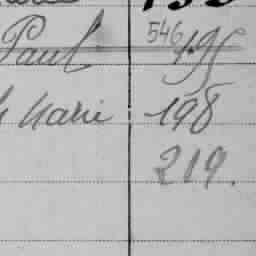 Paul 546 195
Marie 198
219.